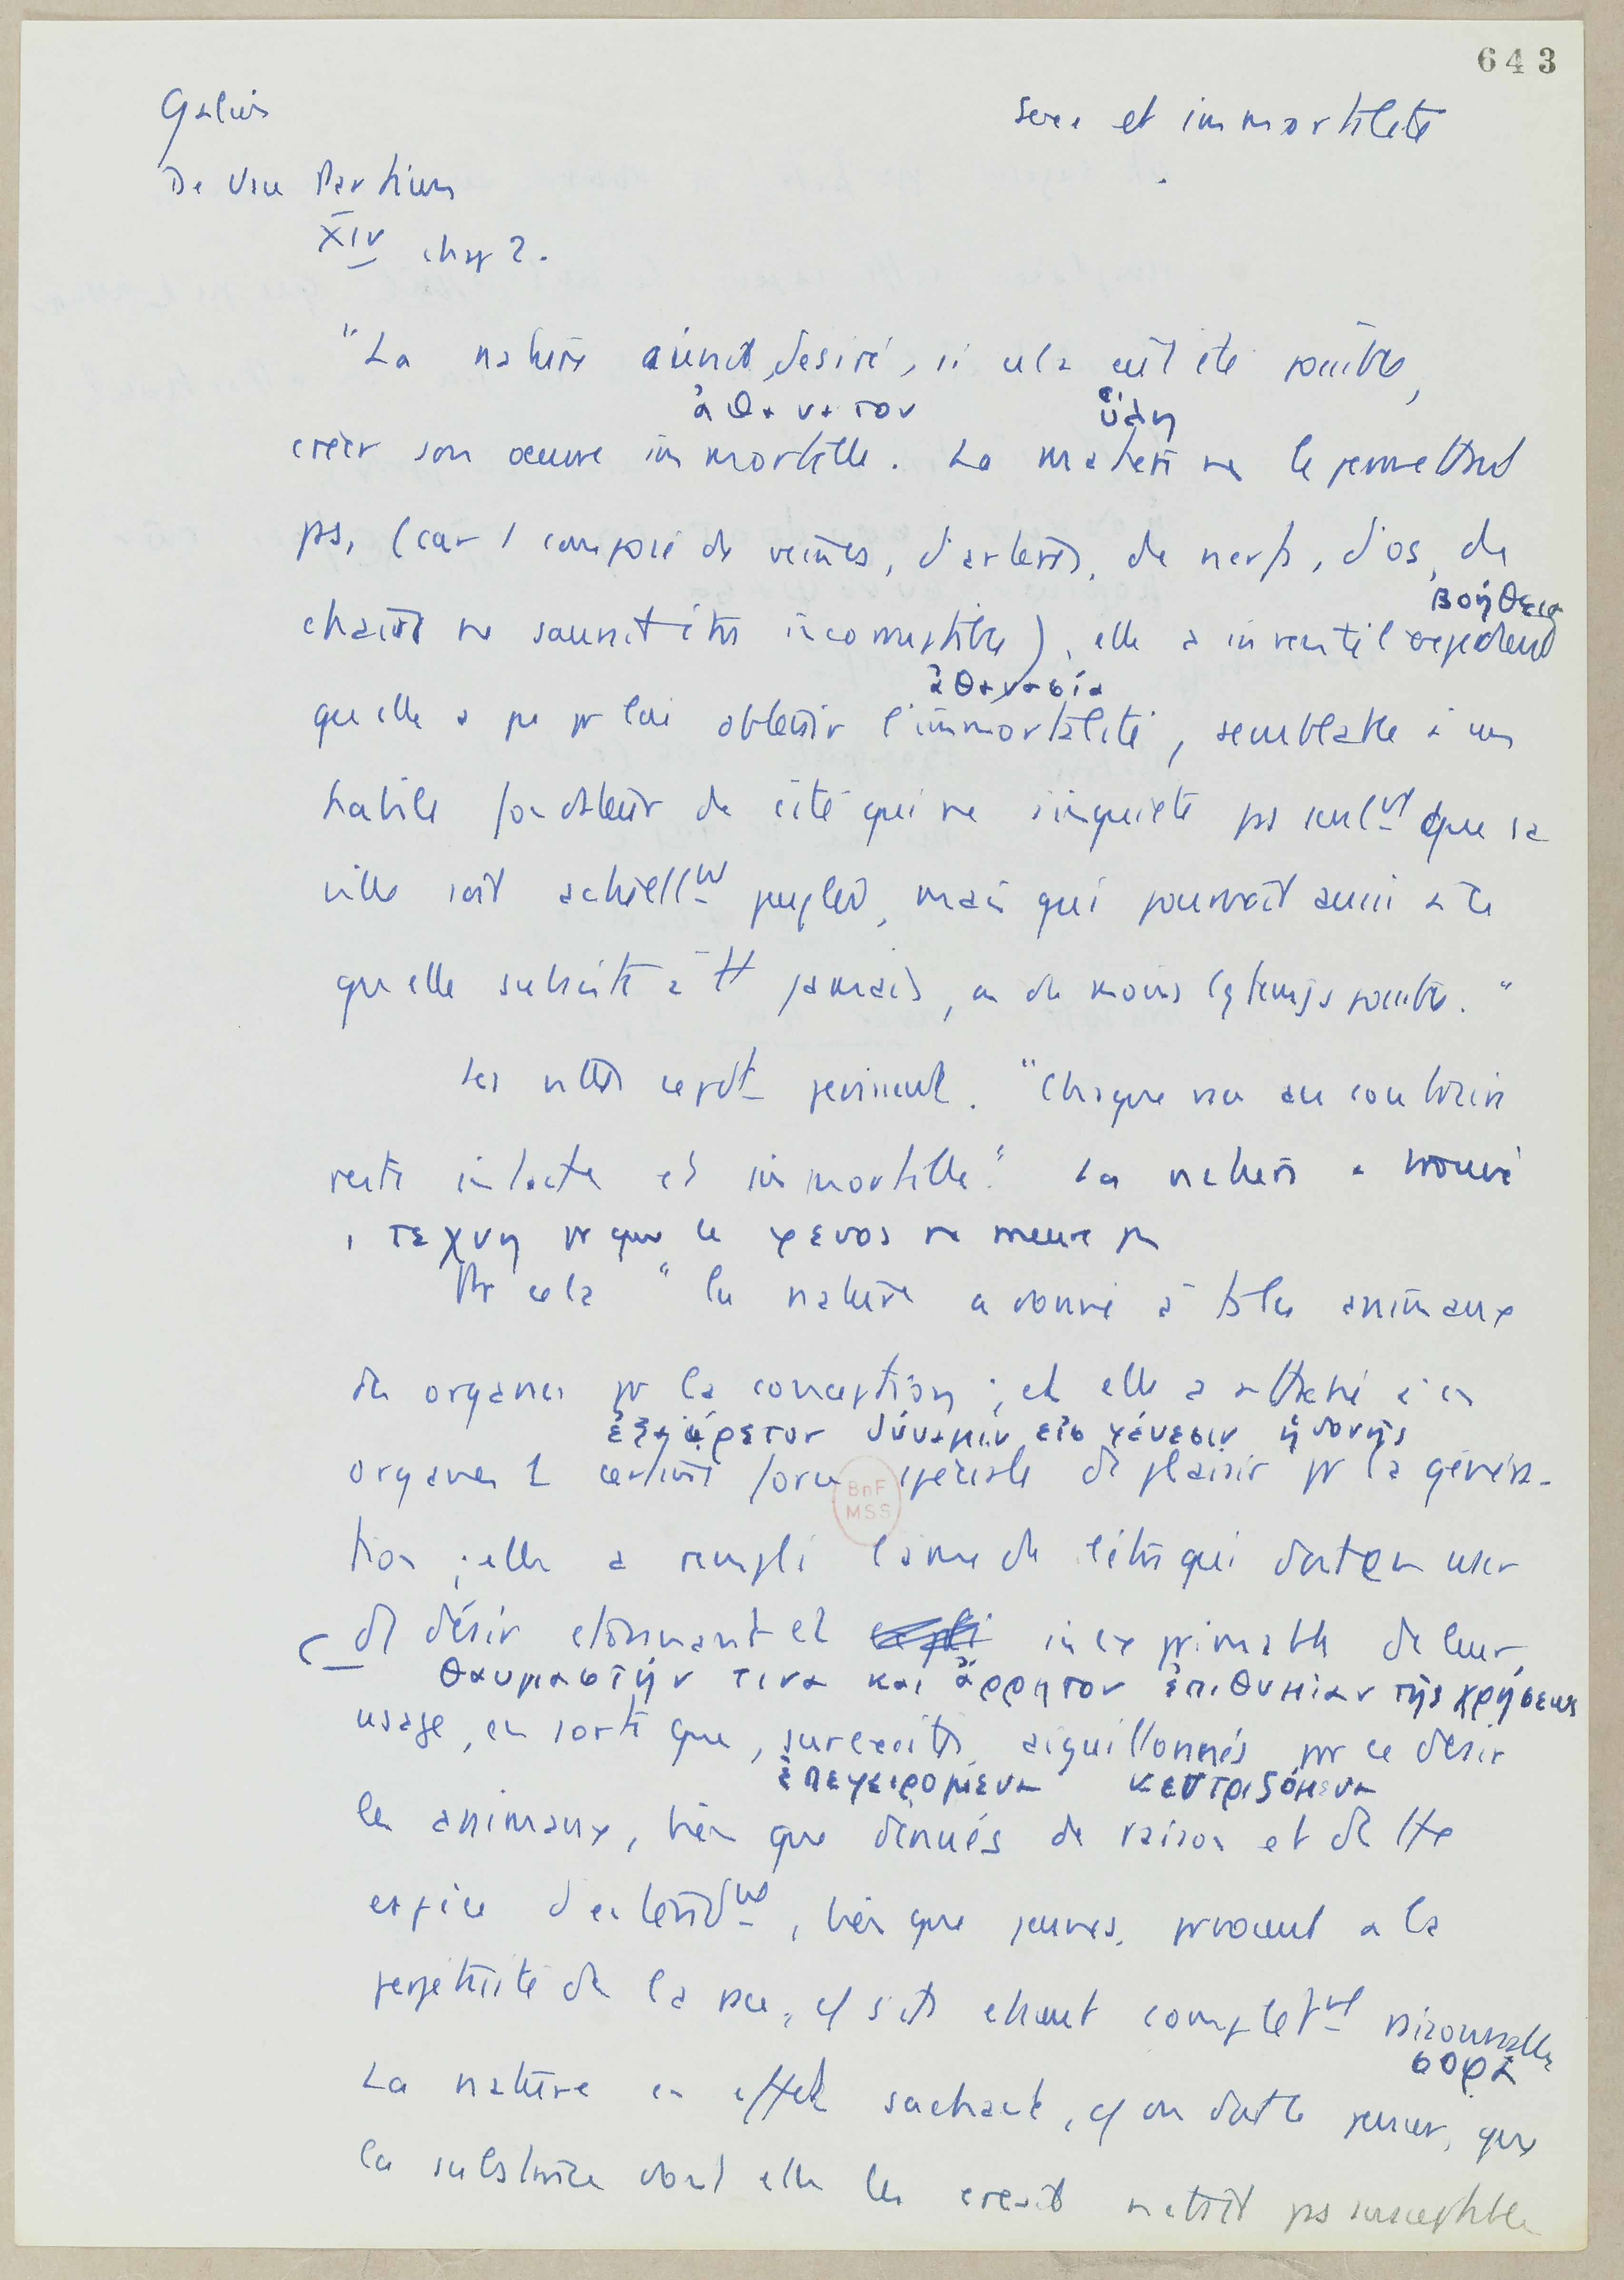 643
Galien
Sexe et immortalité
De Usu Partium
XIV chap 2.
"La nature aurait désiré, si cela eût été possible,
ἀθανατον ὕλη
créer son oeuvre immortelle. La matière ne le permettant
pas, (car 1 composé de veines, d'artères, de nerfs, d'os, de
βοήθεια
chairs ne saurait être incorruptible), elle a inventé l'expédient
ἀθανασία
qu'elle a pu pr lui obtenir l'immortalité, semblable à un
habile fondateur de cité qui ne s'inquiète pas seulmt que sa
ville soit actuellmt peuplée, mais qui pourvoit aussi à ce
qu'elle subsiste à tt jamais, ou du moins lgtemps possible."
Les villes cepdt périssent. "Chaque race au contraire
reste intacte et immortelle". La nature a trouvé
1 τεχνη pr que le γενος ne meure pas
Pr cela "la nature a donné à ts les animaux
des organes pr la conception ; et elle a attaché à ces
ἐξαίρετον δύναμιν εἰς γένεσιν ἡδονῆς
organes 1 certaine force spéciale de plaisir pr la généra-
BnF
MSS
tion ; elle a rempli l'âme de l'être qui doit en user
d'1 désir étonnant et inexprimable de leur
θαυμαστήν τινα και ἄρρητον ἐπιθυμίαν τῆς χρήσεως
usage, en sorte que, surexcités, aiguillonnés par ce désir
ἐπεγειρομενα κεντριζόμενα
les animaux, bien que dénués de raison et de tte
espèce d'entendmt, bien que jeunes, pourvoient à la
perpétuité de la race, cô s'ils étaient complètmt raisonnables
σοφα
La nature en effet sachant, cô on doit le penser, que
la substance dont elle les créait n'était pas susceptible